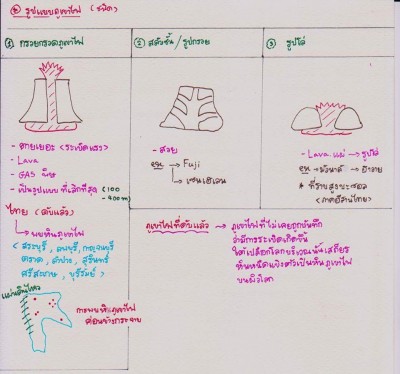 รูปแบบภูเขาไฟ (ชนิด)
① กรวยกรวดภูเขาไฟ
- ตายเยอะ <ระเบิดแรง>
- Lava
- GAS พิษ
- เป็นรูปแบบที่เล็กที่สุด (100 - 400 m)
ไทย (ดับแล้ว)
→ พบหินภูเขาไฟ
< สระบุรี, ลพบุรี, กาญจนบุรี
ตราด, ลำปาง, สุรินทร์
ศรีสะเกษ, บุรีรัมย์ >
แผ่นดินไหว
การพบหินภูเขาไฟ
ค่อนข้างกระจาย
② สลับชั้น / รูปกรวย
- สวย
Fuji
เซนเฮเลน
③ รูปโล่
- Lava แผ่ → รูปโล่
ฮาวาย
* ที่ราบสูง
ภูเขาไฟที่ดับแล้ว → ภูเขาไฟที่ไม่เคยถูกบันทึก
ว่ามีการระเบิดเกิดขึ้น
ใต้เปลือกโลกบริเวณนั้นเสถียร
หินหนืดแข็งตัวเป็นหินภูเขาไฟ
บนผิวโลก